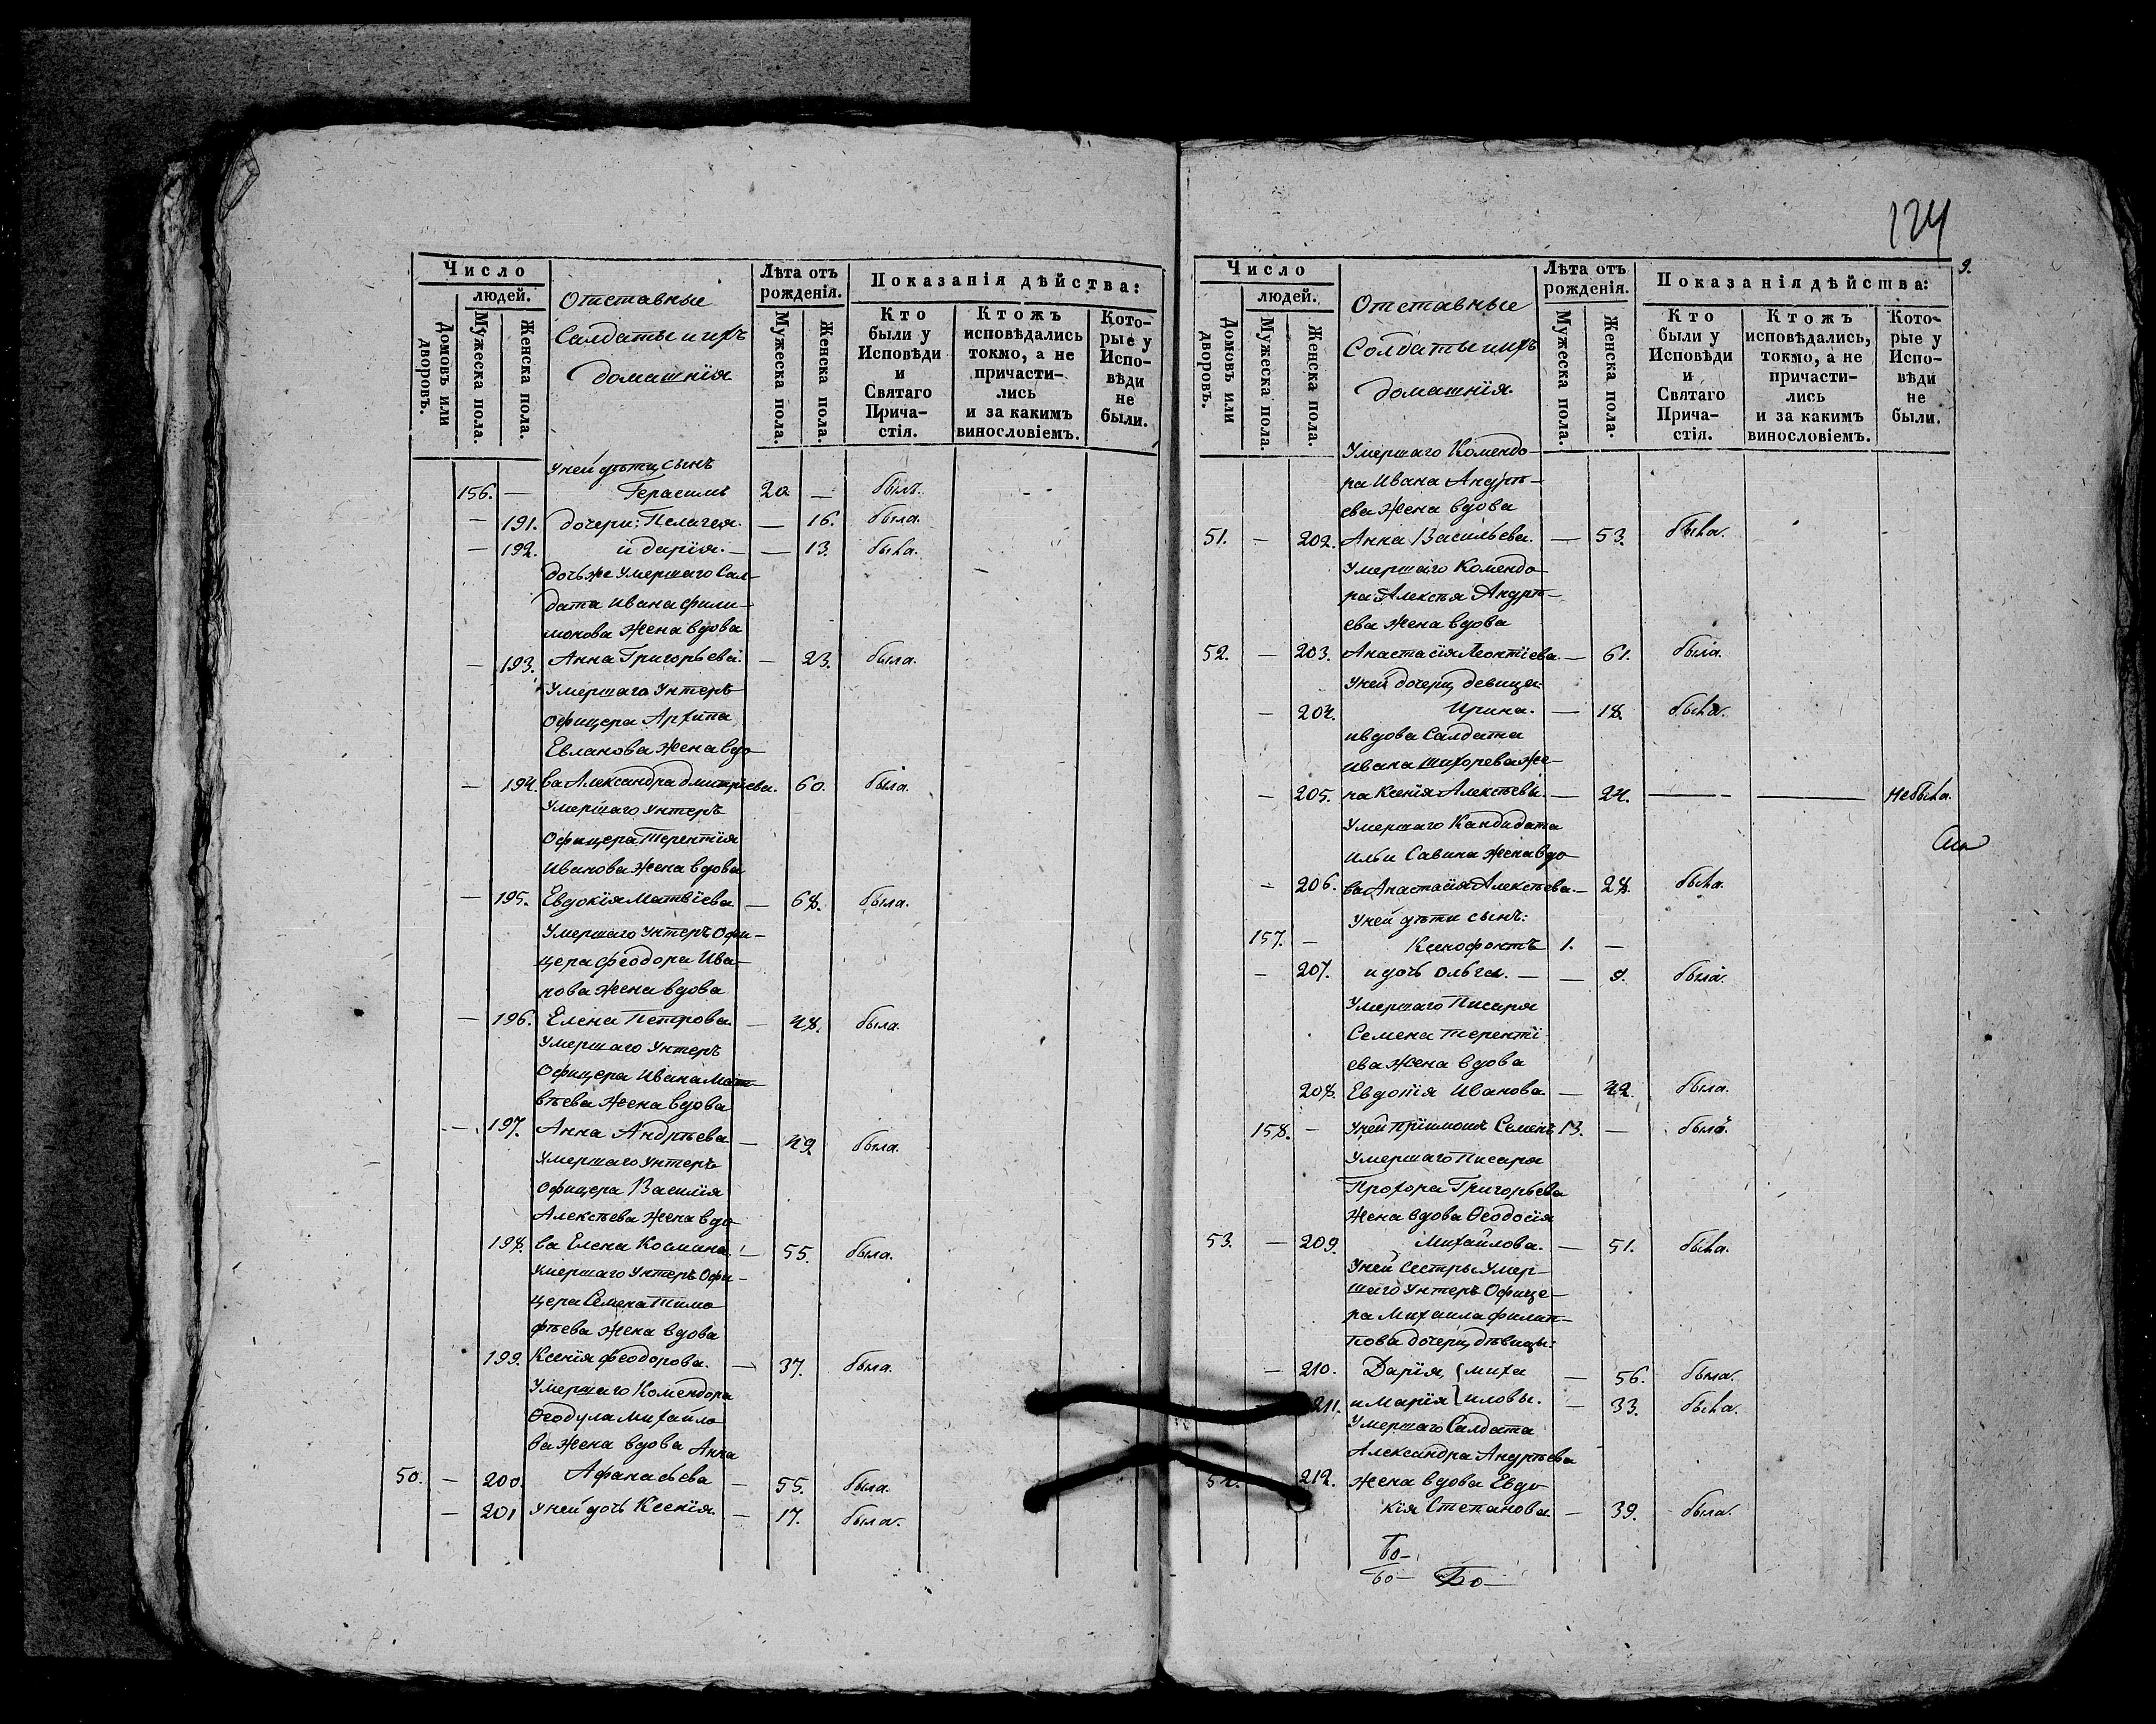 Число
людей.
Домовъ или дворовъ.
Мужеска пола.
Женска пола.
Отставные
Салдаты и ихъ
домашнія
Лѣта отъ рожденія.
Мужеска пола.
Женска пола.
Показанія дѣйства:
Кто были у Исповѣди и Святаго Прича-стія.
Ктожъ исповѣдались токмо, а не причасти-лись и за какимъ винословіемъ.
Кото-рые у Испо-вѣди не были.
У ней дѣти, сынъ
156. — Герасимъ 20 — былъ.
— 191. дочери: Пелагея. — 16. была.
— 192. и дарія. — — 13. была.
дочь же Умершаго Сал-
дата Ивана фили-
монова жена вдова
— 193. Анна Григорьева. — 23. была.
Умершаго Унтеръ
Офицера Архипа
Евланова жена вдо-
— 194. ва Александра дмитріева. 60. была.
Умершаго Унтеръ
Офицера Терентія
Иванова жена вдова
— 195. Евдокія Матвіева — 68. была.
Умершаго Унтеръ Офи-
цера феодора Ива-
нова жена вдова
— 196. Елена Петрова. — 48. была.
Умершаго Унтеръ
Офицера Ивана Мат-
вѣева жена вдова
— 197. Анна Андрѣева — 49 была.
Умершаго Унтеръ
Офицера Василія
Алексѣева жена вдо-
198. ва Елена Космина. — 55. была.
Умершаго Унтеръ Офи-
цера Семена Тимо
фѣева жена вдова
199. Ксенія феодорова. — 37. была.
Умершаго Комендора
Ѳеодула Михайло
ва жена вдова Анна
50. — 200. Афанасьева — 55. была.
— 201 У ней дочь Ксенія. — 17. была.
124
9.
Число
людей.
Домовъ или дворовъ.
Мужеска пола.
Женска пола.
Отставные
Солдаты и ихъ
домашнія.
Лѣта отъ рожденія.
Мужеска пола.
Женска пола.
Показанія дѣйства:
Кто были у Исповѣди и Святаго Прича-стія.
Ктожъ исповѣдались, токмо, а не причасти-лись и за какимъ винословіемъ.
Кото-рые у Испо-вѣди не были.
Умершаго Комендо-
ра Ивана Андрѣ-
ева жена вдова
51. — 202. Анна Васильева. — 53. была.
Умершаго Комендо-
ра Алексѣя Андрѣ-
ева жена вдова
52. — 203. Анастасія Леонтіева. — 61. была.
У ней дочери, девица:
— 204. Ирина. — 18. была.
и вдова Салдата
Ивана Шихорева же-
— 205. на Ксенія Алексѣева. — 24. — — Небыла.
Умершаго Кандидата
Ильи Савина жена вдо
— 206. ва Анастасія Алексѣева. — 28. была.
У ней дѣти сынъ:
157. — Ксенофонтъ 1. —
— 207. и дочь Ольга. — — 9. была.
Умершаго Писаря
Семена Теренті-
ева жена вдова
208. Евдокія Иванова. — 42. была.
158. — У ней пріимошъ Семенъ 13. — былъ.
Умершаго Писаря
Прохора Григорьева
жена вдова Ѳеодосія
53. — 209. Михайлова. — 51. была.
У ней сестры Умер-
шаго Унтеръ Офице-
ра Михаила филип-
пова дочери, дѣвицы:
— 210. Дарія, { миха — 56. была.
211. и Марія } иловы. — 33. была.
Умершаго Салдата
Александра Андрѣева
54. 212. жена вдова Евдо
кія Степанова. — 39. была.
Бо-
Бо- Бо-